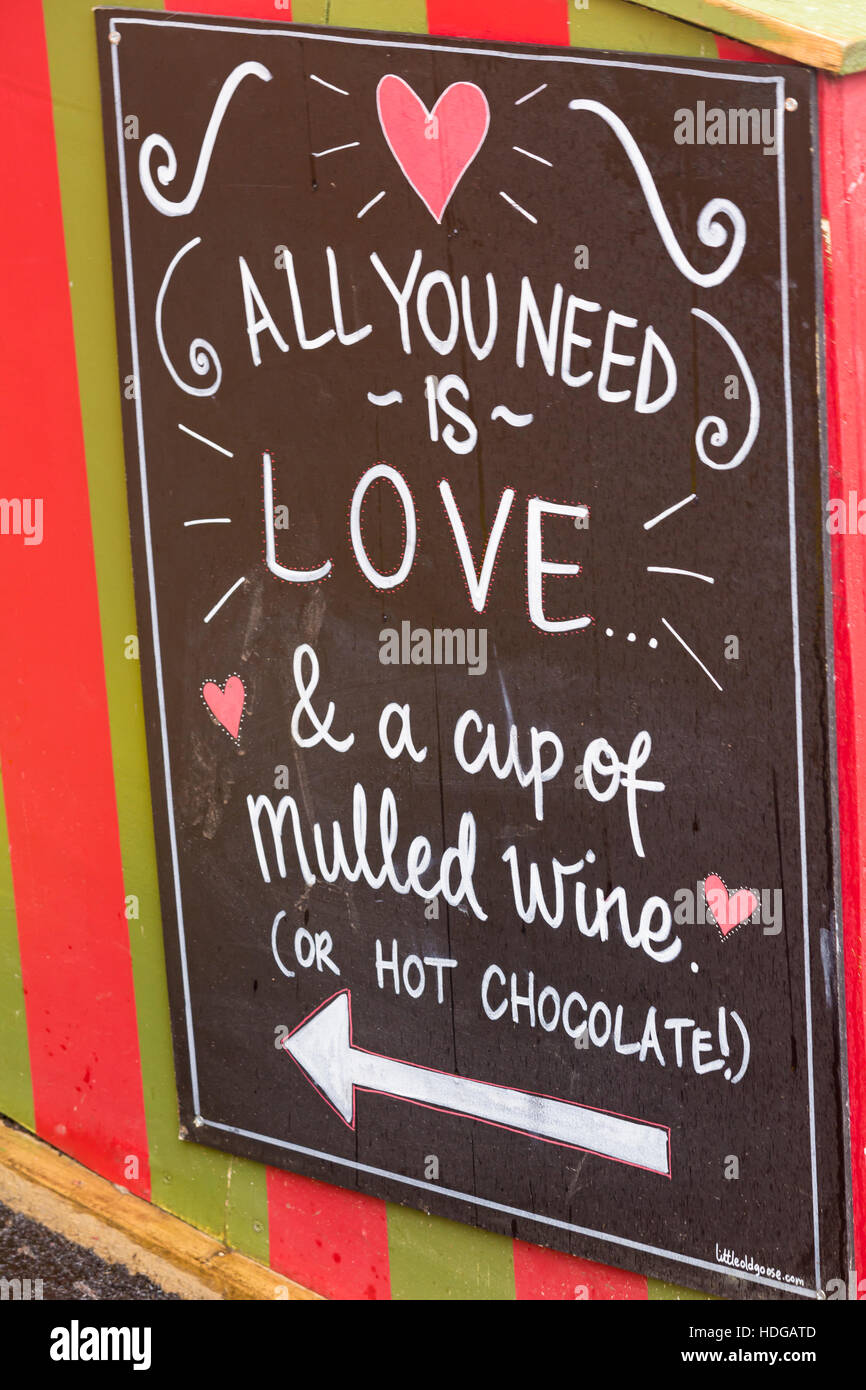 ALL YOU NEED
~ IS ~
LOVE...
& a cup of
Mulled Wine.
(OR HOT CHOCOLATE!)
littleoldgoose.com
alamy stock photo
HDGATD
www.alamy.com